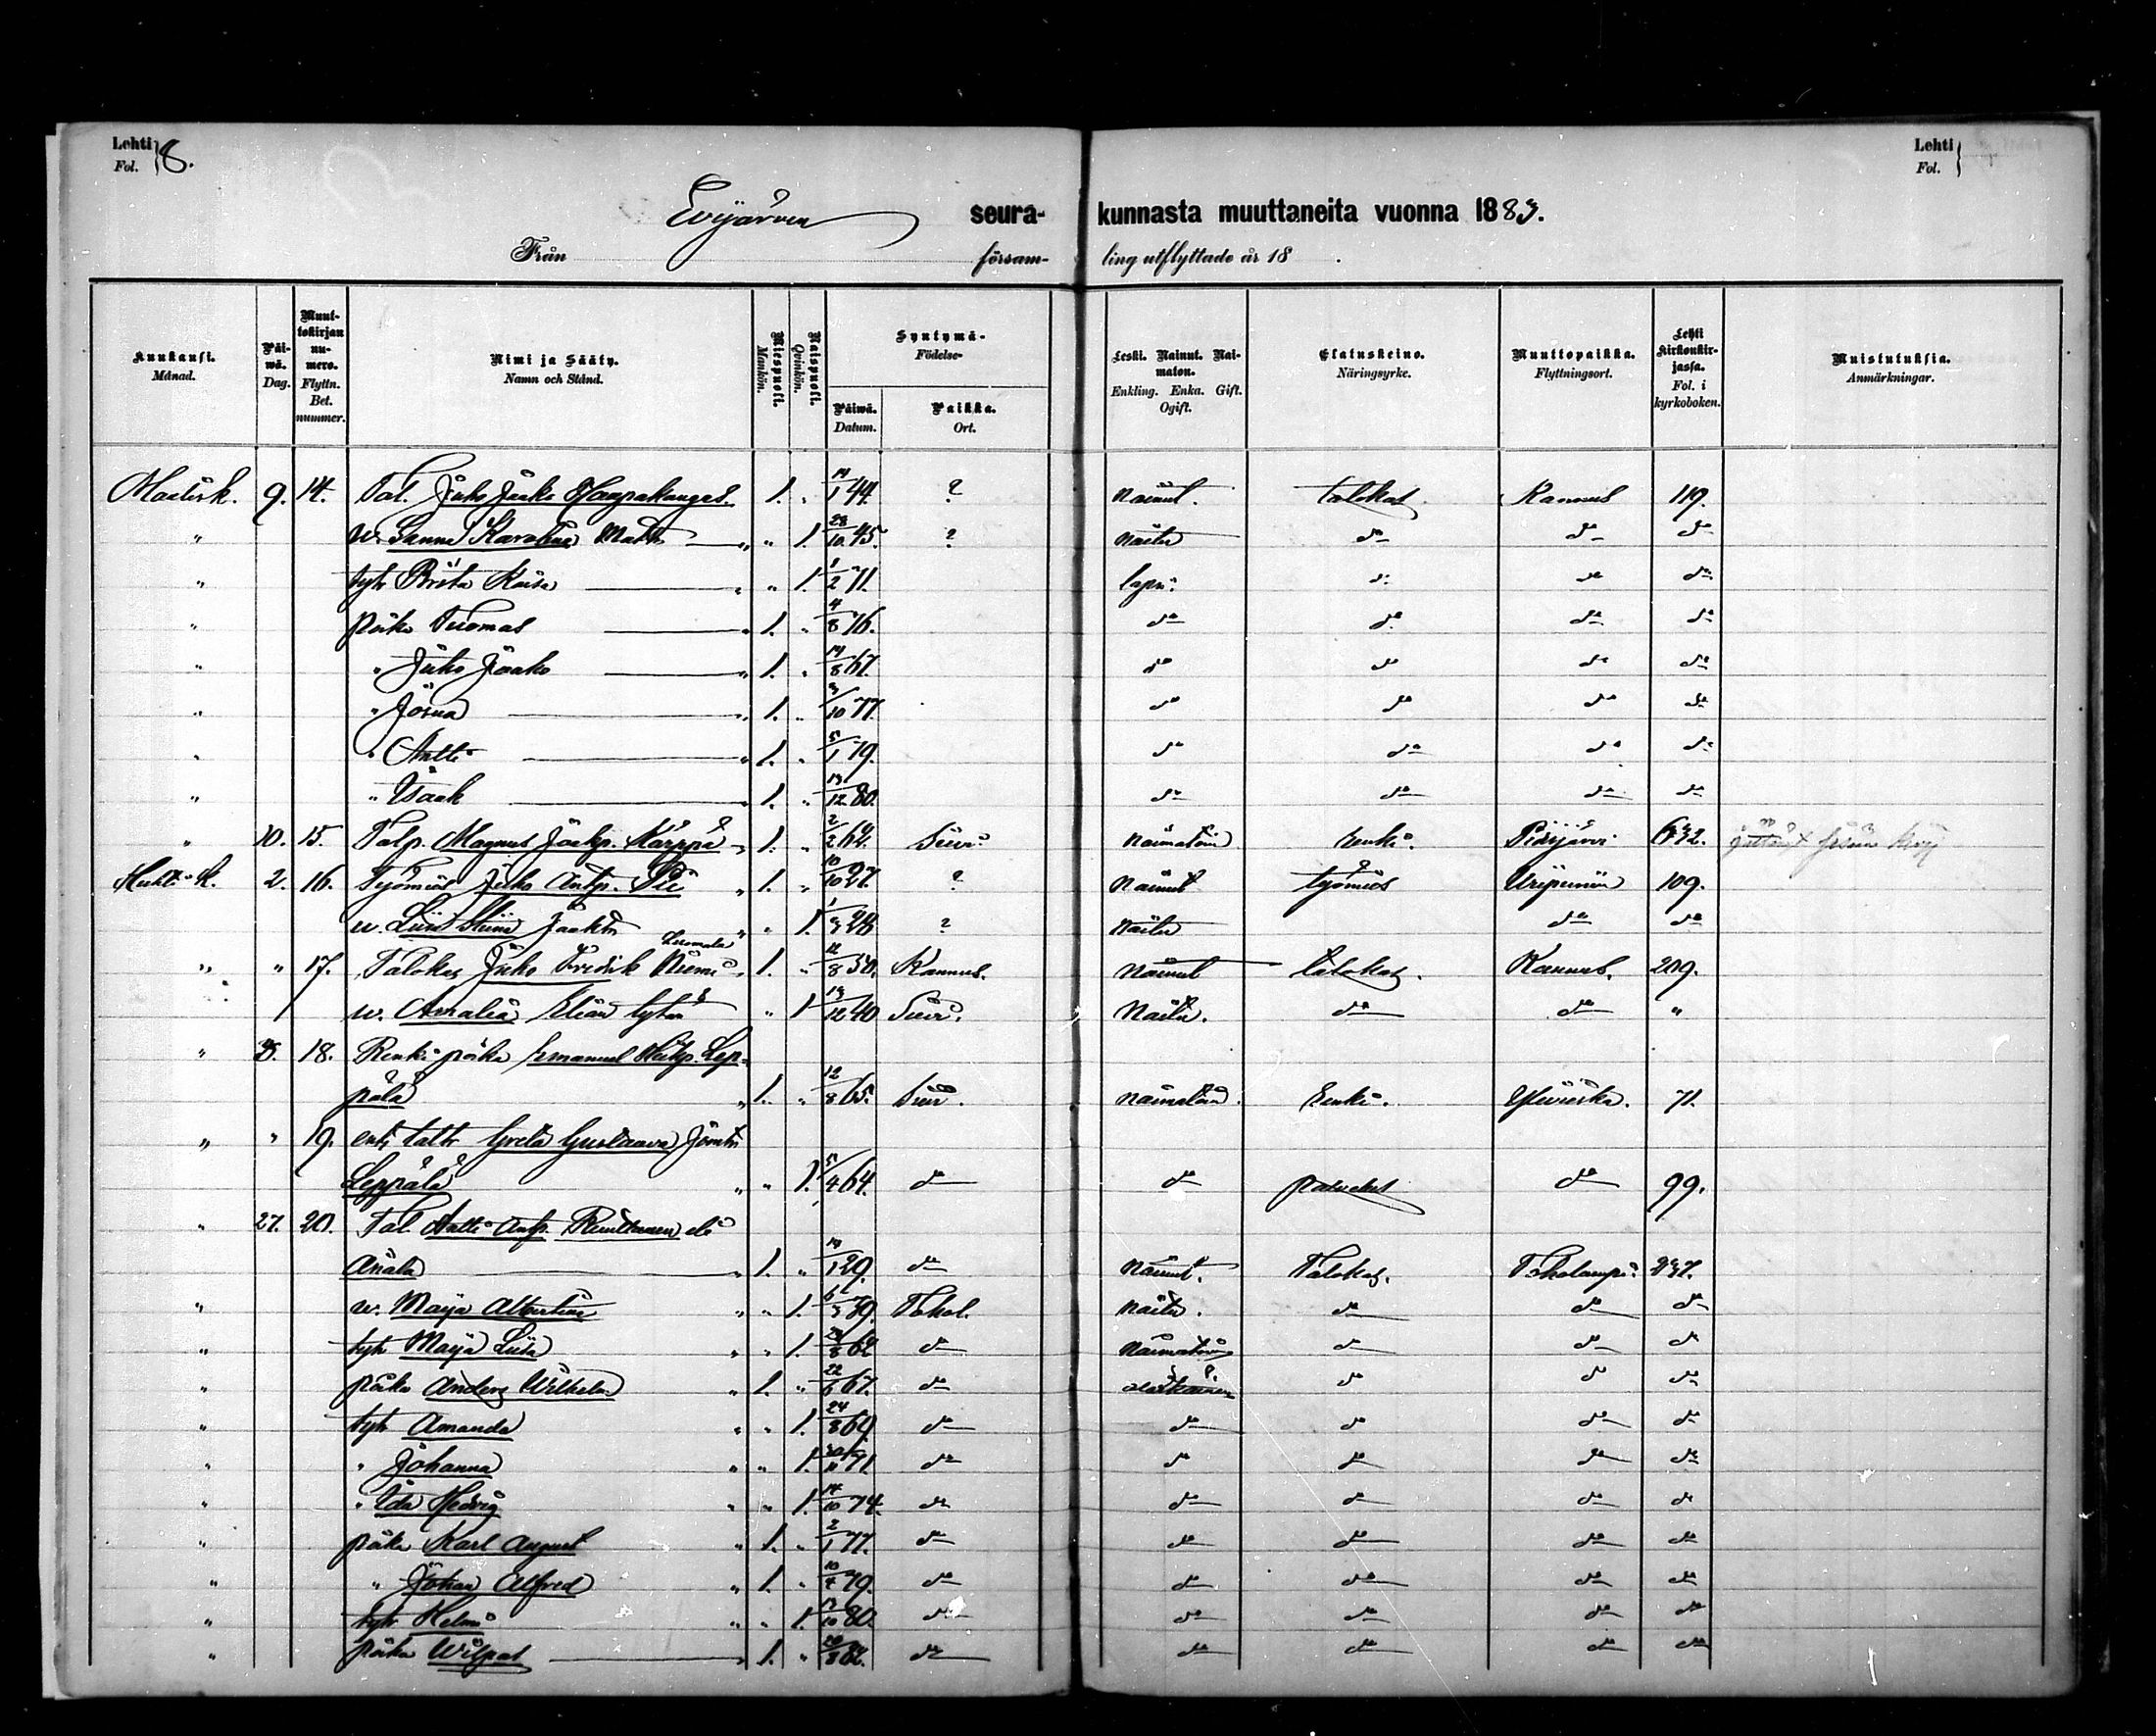 Lehti Fol. } 8.
Lehti Fol. }
Evijärven seura- kunnasta muuttaneita vuonna 1883.
Från försam- ling utflyttade år 18 .
Kuukausi. Månad. Päi- wä. Dag. Muut- tokirjan nu- mero. Flyttn. Bet. nummer. Nimi ja Sääty. Namn och Stånd. Miespuoli. Mankön. Naispuoli. Qvinkön. Syntymä- Födelse- Päiwä. Datum. Paikka. Ort. Leski. Nainut. Nai- maton. Enkling. Enka. Gift. Ogift. Elatuskeino. Näringsyrke. Muuttopaikka. Flyttningsort. Lehti Kirkonkir- jassa. Fol. i kyrkoboken. Muistutuksia. Anmärkningar.
Maalisk. 9. 14. Tal. Juho Jaako Haapakangas. 1. " 14/1 44 ? Nainut. talokas Kannus 119.
" w. Sanna Karolina Matt " " 1. 28/10 45. ? Naitu do do do
" tytr Brita Kaisa " " 1. 1/2 71. lapsi do do do
" poika Tuomas " 1. " 4/8 76. do do do do
" " Juho Jaako " 1. " 14/8 67. do do do do
" " Josua " 1. " 3/10 77. do do do do
" " Antti " 1. " 5/1 79. do do do do
" " Isaak " 1. " 13/12 80. do do do do
" 10. 15. Talp. Magnus Jaakp. Kärppä " 1. " 2/2 62. Siwi Naimatoin renki. Pidisjärvi 632.
Huhti K. 2. 16. Työmies Juho Antp. " 1. " 10/10 27. ? Nainut työmies 109.
w. Liisa Stiina Jaaktr " " 1. ? Naitu do do
" " 17. Talokas Juho Fredrik Niemi Luomala " 1. " 12/8 30. Kannus. Nainut talokas. Kannus. 209.
w. Amalia Elian tytär " 1 13/12 40 Siwi. Naitu. do do "
" 3. 18. Renki poika Emanuel Heikp. Lep-
pälä " 1. " 12/8 65. Siwi. Naimatoin. renki. Ylivieska. 71.
" " 19. Greta Gustaava
Leppälä " " 1. 5/4 64. do do do 99.
" 27. 20. Tal. Antti Antp. eli
Anala " 1. " 14/1 29. do Nainut. Talokas. Toholampi. 237.
" w. Maija Albertina " " 1. 39. Tohol. Naitu. do do do
" tytr Maija Liisa " " 1. 62 do Naimatoin do do do
" poika Anders Wilhelm " 1. " 22/6 67. do do do do
" tytr Amanda " " 1. 24/8 69. do do do do do
" " Johanna " " 1. 71. do do do do do
" " Ida Hedvig " " 1. 14/10 74. do do do do do
" poika Karl August " 1. " 2/1 77. do do do do do
" " Johan Alfred " 1. " 10/4 79. do do do do do
" tytr Helmi " " 1. 80. do do do do do
" poika " 1. " 82. do do do do do